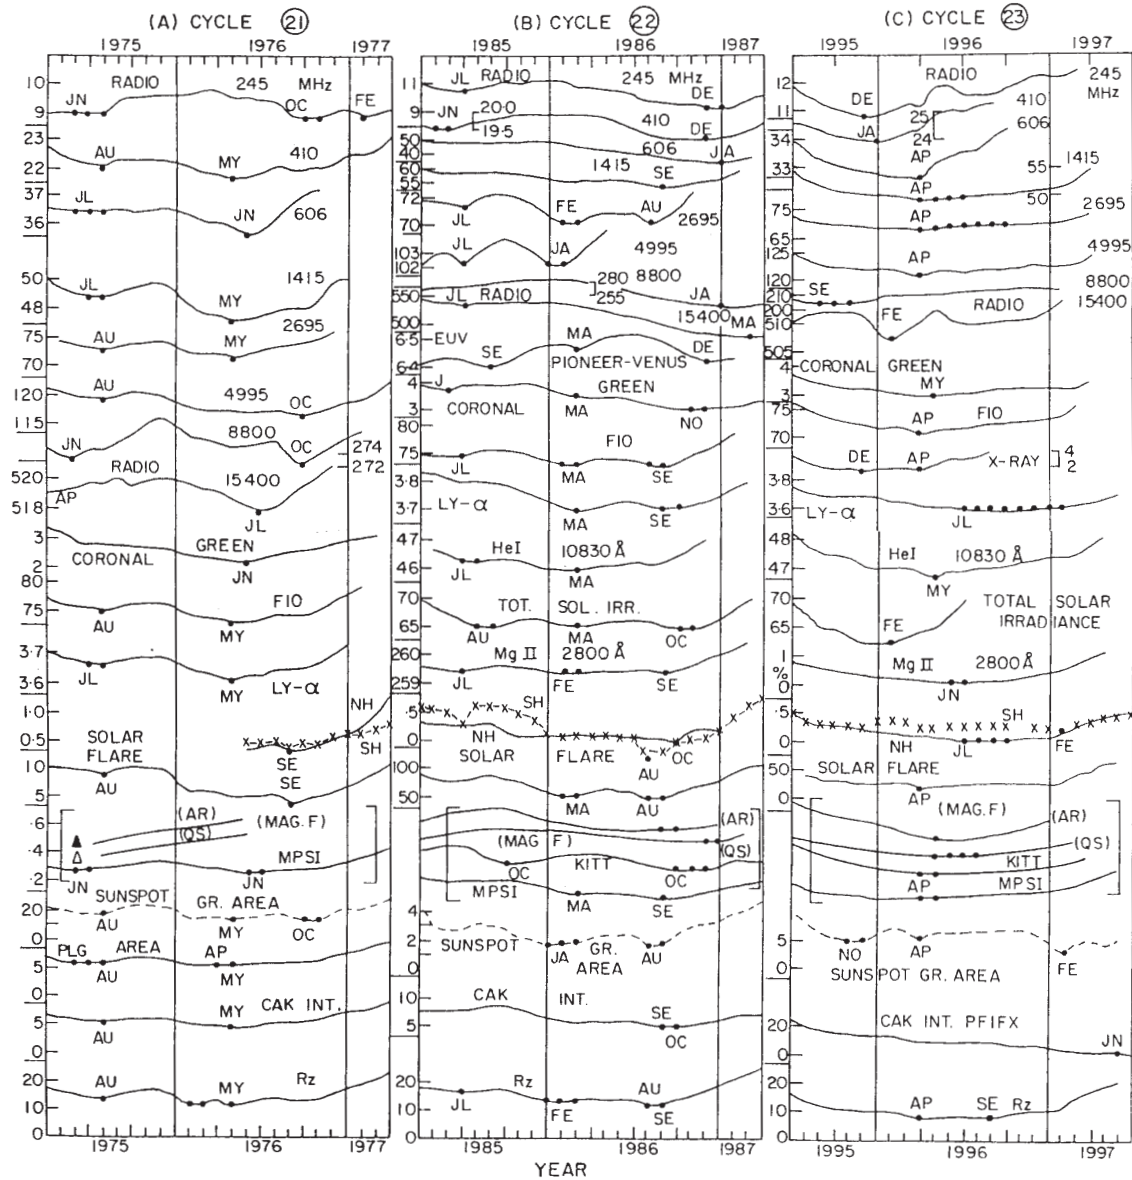 (A) CYCLE 21
1975 1976 1977
RADIO 245 MHz
10
9
JN OC FE
23
22
AU MY 410
37
36
JL JN 606
50
48
JL MY 1415
75
70
AU MY 2695
120
115
AU 4995 OC
JN 8800 OC 274
272
RADIO
520
518
AP 15400 JL
3
2
CORONAL GREEN
JN
80
75
AU MY F10
3.7
3.6
JL MY LY-α
1.0
0.5
NH
SH
SE
SOLAR FLARE
10
5
AU SE
.6
.4
.2
(AR)
(QS)
(MAG.F)
JN JN MPSI
SUNSPOT GR. AREA
20
0
AU MY OC
PLG AREA AP
5
0
AU MY
MY CAK INT.
5
0
AU
AU MY Rz
20
10
0
1975 1976 1977
(B) CYCLE 22
1985 1986 1987
JL RADIO 245 MHz
11
9
DE
JN 20.0
19.5
410
DE
50
40
606
JA
60
55
1415
SE
72
70
JL FE AU 2695
103
102
JL JA 4995
280 8800
255
JA
550
500
JL RADIO
15400 MA
6.5
6.4
EUV SE MA DE
PIONEER-VENUS
4
3
J GREEN
CORONAL MA NO
80
75
F10
JL MA SE
3.8
3.7
LY-α MA SE
47
46
HeI 10830 Å
JL MA
70
65
TOT. SOL. IRR.
AU MA OC
260
259
Mg II 2800 Å
JL FE SE
.5
0
SH
NH
OC
AU
SOLAR FLARE
100
50
MA AU
(AR)
(MAG F)
(QS)
OC KITT OC
MPSI
MA SE
4
2
0
SUNSPOT GR. AREA
JA AU
10
5
CAK INT.
SE
OC
20
10
0
Rz AU
JL FE SE
1985 1986 1987
YEAR
(C) CYCLE 23
1995 1996 1997
RADIO 245 MHz
12
11
DE
JA 25
24
410
34
33
606
AP
55
50
1415
AP
75
65
2695
AP
125
120
4995
SE 8800
210
200
RADIO 15400
510
505
FE
CORONAL GREEN
4
3
MY
75
70
AP F10
DE AP X-RAY 4
2
3.8
3.6
LY-α JL
48
47
HeI 10830 Å
MY
70
65
TOTAL SOLAR
IRRADIANCE
FE
1
%
0
Mg II 2800 Å
JN
.5
0
SH
NH JL FE
SOLAR FLARE
50
0
AP
(MAG.F) (AR)
(QS)
KITT
AP MPSI
5
0
NO AP FE
SUNSPOT GR. AREA
CAK INT. PFIFX
20
0
JN
AP SE Rz
20
10
0
1995 1996 1997